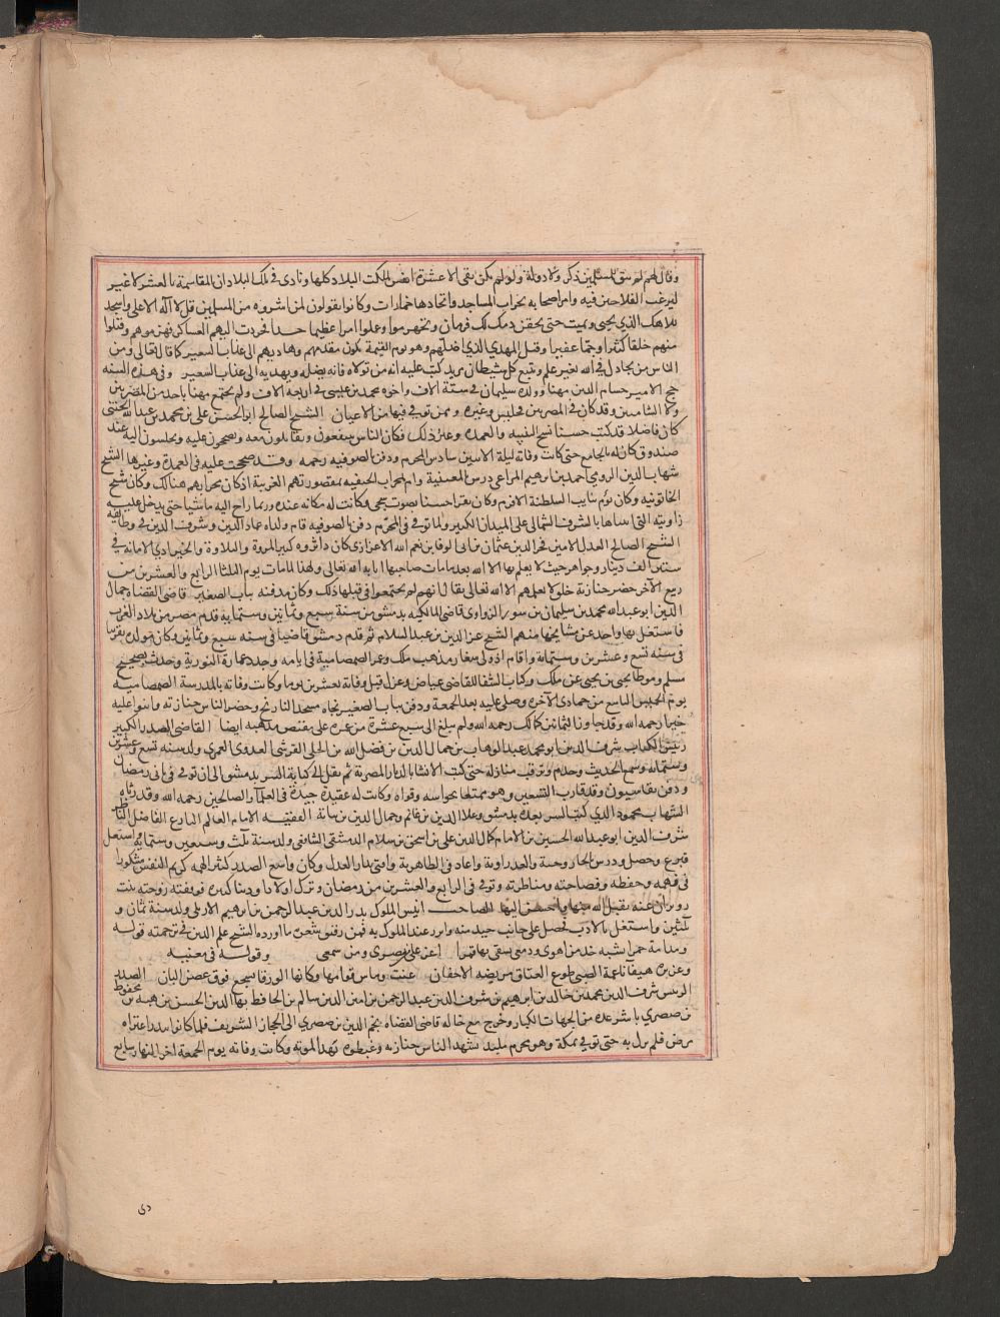 وقال لهم لم يبق للمسلمين ذكر ولا دولة ولو لم يكن بقى الا عشرة انفس لملكت البلاد كلها ونادى فى تلك البلاد ان المقاسمة بالعشر لا غير
ليرغب الفلاحين فيه وامر اصحابه بخراب المساجد واتخاذها خمارات وكانوا يقولون لمن اسروه من المسلمين قل لا اله الا على واسجد
للاهك الذى يحيى ويميت حتى يحقن دمك ويكتب لك فرمان وتجهزوا وعملوا امرا عظيما جدا فجردت اليهم العساكر فهزموهم وقتلوا
منهم خلقا كثيرا وجما غفيرا وقتل المهدى الذى اضلهم وهو يوم القيمة يكون مقدمهم وهاديهم الى عذاب السعير كما قال تعالى ومن
الناس من يجادل فى الله بغير علم ويتبع كل شيطان مريد كتب عليه انه من تولاه فانه يضله ويهديه الى عذاب السعير وفى هذه السنه
حج الامير حسام الدين مهنا وولده سليمان فى ستة الاف واخوه محمد بن عيسى فى اربعة الاف ولم يجتمع مهنا باحد من المصريين
ولا الشاميين وقد كان فى المصريين تجليس وغيره وممن توفى فيها من الاعيان الشيخ الصالح ابو الحسن على بن محمد بن عبد الله
كان فاضلا قد كتب حسنا نسخ التنبيه والعمده وغير ذلك فكان الناس ينتفعون ويقابلون معه ويصححون عليه ويجلسون اليه عند
صندوق كان له بالجامع حتى كانت وفاته ليلة الاثنين سادس المحرم ودفن بالصوفيه رحمه وقد صححت عليه فى العمدة وغيرها الشيخ
شهاب الدين الرومى احمد بن ابرهيم المراغى درس بالمعينية وام بمحراب الحنفيه بمقصورتهم الغربية اذ كان محرابهم هنالك وكان شيخ
الخاتونيه وكان يؤم بنايب السلطنة الافرم وكان يقرا حسنا بصوت شجى وكانت له مكانه عنده وربما راح اليه ماشيا حتى يدخل عليه
زاويته التى انشاها بالشرف الشمالى على الميدان الكبير ولما توفى فى المحرم دفن بالصوفيه قام ولداه عماد الدين وشرف الدين فى وظائفه
الشيخ الصالح العدل الامين فخر الدين عثمان بن ابى الوفا بن نعم الله الاعزازى كان ذا ثروه كبير المروة والتلاوة والخير ادى الامانه فى
ستين الف دينار وجواهر حيث لا يعلم بها الا الله بعد ما مات صاحبها اثابه الله تعالى ولهذا لما مات يوم الثلثا الرابع والعشرين من
ربيع الآخر حضر جنازته خلق لا يعلمهم الا الله تعالى يقال انهم لم يجتمعوا فى قبلها ذلك وكان مدفنه بباب الصغير قاضى القضاه جمال
الدين ابو عبد الله محمد بن سليمان بن سومر الزواوى قاضى المالكيه بدمشق من سنة سبع وثمانين وستمايه قدم مصر من بلاد الغرب
فاشتغل بها واخذ عن مشايخها منهم الشيخ عز الدين بن عبد السلام ثم قدم دمشق قاضيا فى سنه سبع وثمانين وكان مولده تقريبا
فى سنه تسع وعشرين وستمايه واقام شعار مذهب ملك وعمر الصمصامية فى ايامه وجدد عمارة النورية وحدث بصحيح
مسلم وموطا يحيى بن يحيى عن ملك وكتاب الشفا للقاضى عياض وعزل قبل وفاته بعشرين يوما وكانت وفاته بالمدرسة الصمصاميه
يوم الخميس التاسع من جمادى الآخره وصلى عليه بعد الجمعة ودفن بباب الصغير تجاه مسجد التاريخ وحضر الناس جنازته واثنوا عليه
خيرا رحمه الله وقد جاوز الثمانين كمالك رحمه الله ولم يبلغ الى سبع عشرة من عمره على مقتضى مذهبه ايضا القاضى الصدر الكبير
رئيس الكتاب شرف الدين ابو محمد عبد الوهاب بن جمال الدين بن فضل الله بن الحلى القرشى العدوى العمرى ولد سنه تسع وعشرين
وستمايه وسمع الحديث وخدم وترقت منازله حتى كتب الانشا بالديار المصرية ثم نقل الى كتابة السر بدمشق الى ان توفى فى ثانى رمضان
ودفن بقاسيون وقد قارب التسعين وهو ممتع بحواسه وقواه وكانت له عقيدة جيدة فى العلماء والصالحين رحمه الله وقد رثاه
الشهاب محمود الذى كتب السر بعده بدمشق وعلا الدين بن غانم وجمال الدين بن نباتة الفقيه الامام العالم البارع الفاضل
شرف الدين ابو عبد الله الحسين بن الامام كمال الدين على بن اسحق بن سلام الدمشقى الشافعى ولد سنة ثلث وسبعين وستمايه واشتغل
فبرع وحصل ودرس بالجاروخية والعذراوية واعاد فى الظاهرية وافتى بدار العدل وكان واسع الصدر كثير الهمه كريم النفس مشكورا
فى فهمه وحفظه وفصاحته ومناظرته وتوفى فى الرابع والعشرين من رمضان وترك اولادا ودينا كثيره فوفته زوجته بنت
زويزان عنه تقبل الله منها واحسن اليها الصاحب انيس الملوك بدر الدين عبد الرحمن بن ابرهيم الاربلى ولد سنة ثمان و
ثلثين واشتغل بالادب فحصل على جانب جيد منه وارتزق عند الملوك به فمن رقيق شعره ما اورده الشيخ علم الدين فى ترجمته قوله
ومدامة حمرا تشبه خد من اهوى ودمعى يسقى بها قمرا اعز على من بصرى ومن سمعى وقوله فى مغنيه
وعزيزة هيفا ناعمة الصبى طوع العناق مريضه الاجفان غنت وماس قوامها وكانها الورقا تسجع فوق غصن البان الصدر
الرئيس شرف الدين محمد بن خالد بن ابراهيم بن شرف الدين عبد الرحمن بن امين الدين سالم بن الحافظ بها الدين الحسن بن هبة بن محفوظ
بن صصرى باشر عده من الجهات الكبار وخرج مع خاله قاضى القضاه نجم الدين بن صصرى الى الحجاز الشريف فلما كانوا ببدر اعتراه
مرض فلم يزل به حتى توفى بمكة وهو محرم ملبد فشهد الناس جنازته وغبطوه بهذا الموته وكانت وفاته يوم الجمعة اخر النهار سابع